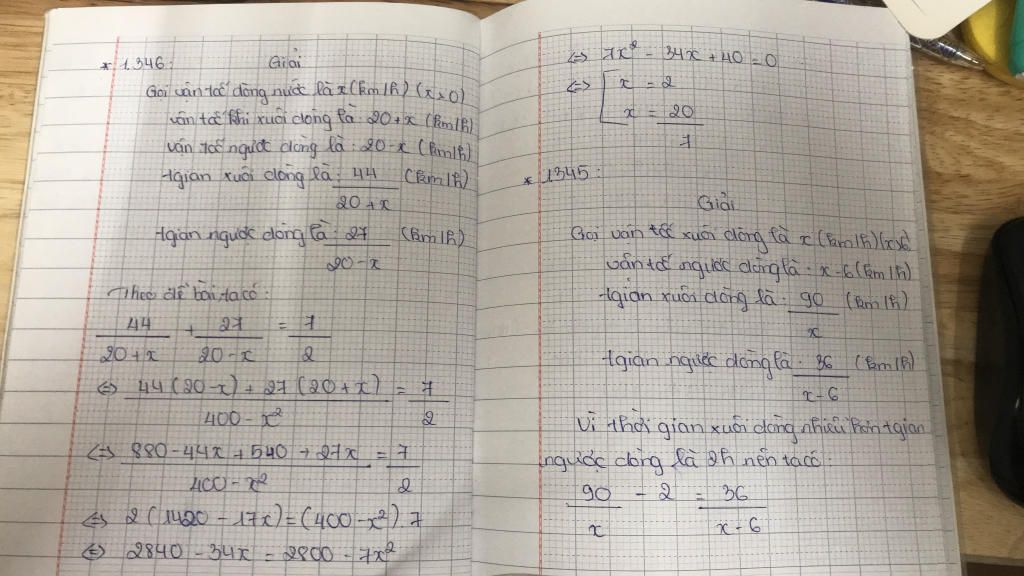 * 1346:
Giải
Gọi vận tốc dòng nước là x (km/h) (x>0)
vận tốc khi xuôi dòng là: 20+x (km/h)
vận tốc ngược dòng là: 20-x (km/h)
tgian xuôi dòng là: 44/(20+x) (km/h)
tgian ngược dòng là: 27/(20-x) (km/h)
Theo đề bài ta có:
44/(20+x) + 27/(20-x) = 7/2
⇔ (44(20-x) + 27(20+x))/(400-x²) = 7/2
⇔ (880-44x+540+27x)/(400-x²) = 7/2
⇔ 2(1420-17x) = (400-x²).7
⇔ 2840-34x = 2800-7x²
⇔ 7x²-34x+40=0
⇔ [ x = 2
x = 20/7
* 1345:
Giải
Gọi vận tốc xuôi dòng là x (km/h) (x>6)
vận tốc ngược dòng là: x-6 (km/h)
tgian xuôi dòng là: 90/x (km/h)
tgian ngược dòng là: 36/(x-6) (km/h)
Vì thời gian xuôi dòng nhiều hơn tgian
ngược dòng là 2h nên ta có:
90/x - 2 = 36/(x-6)